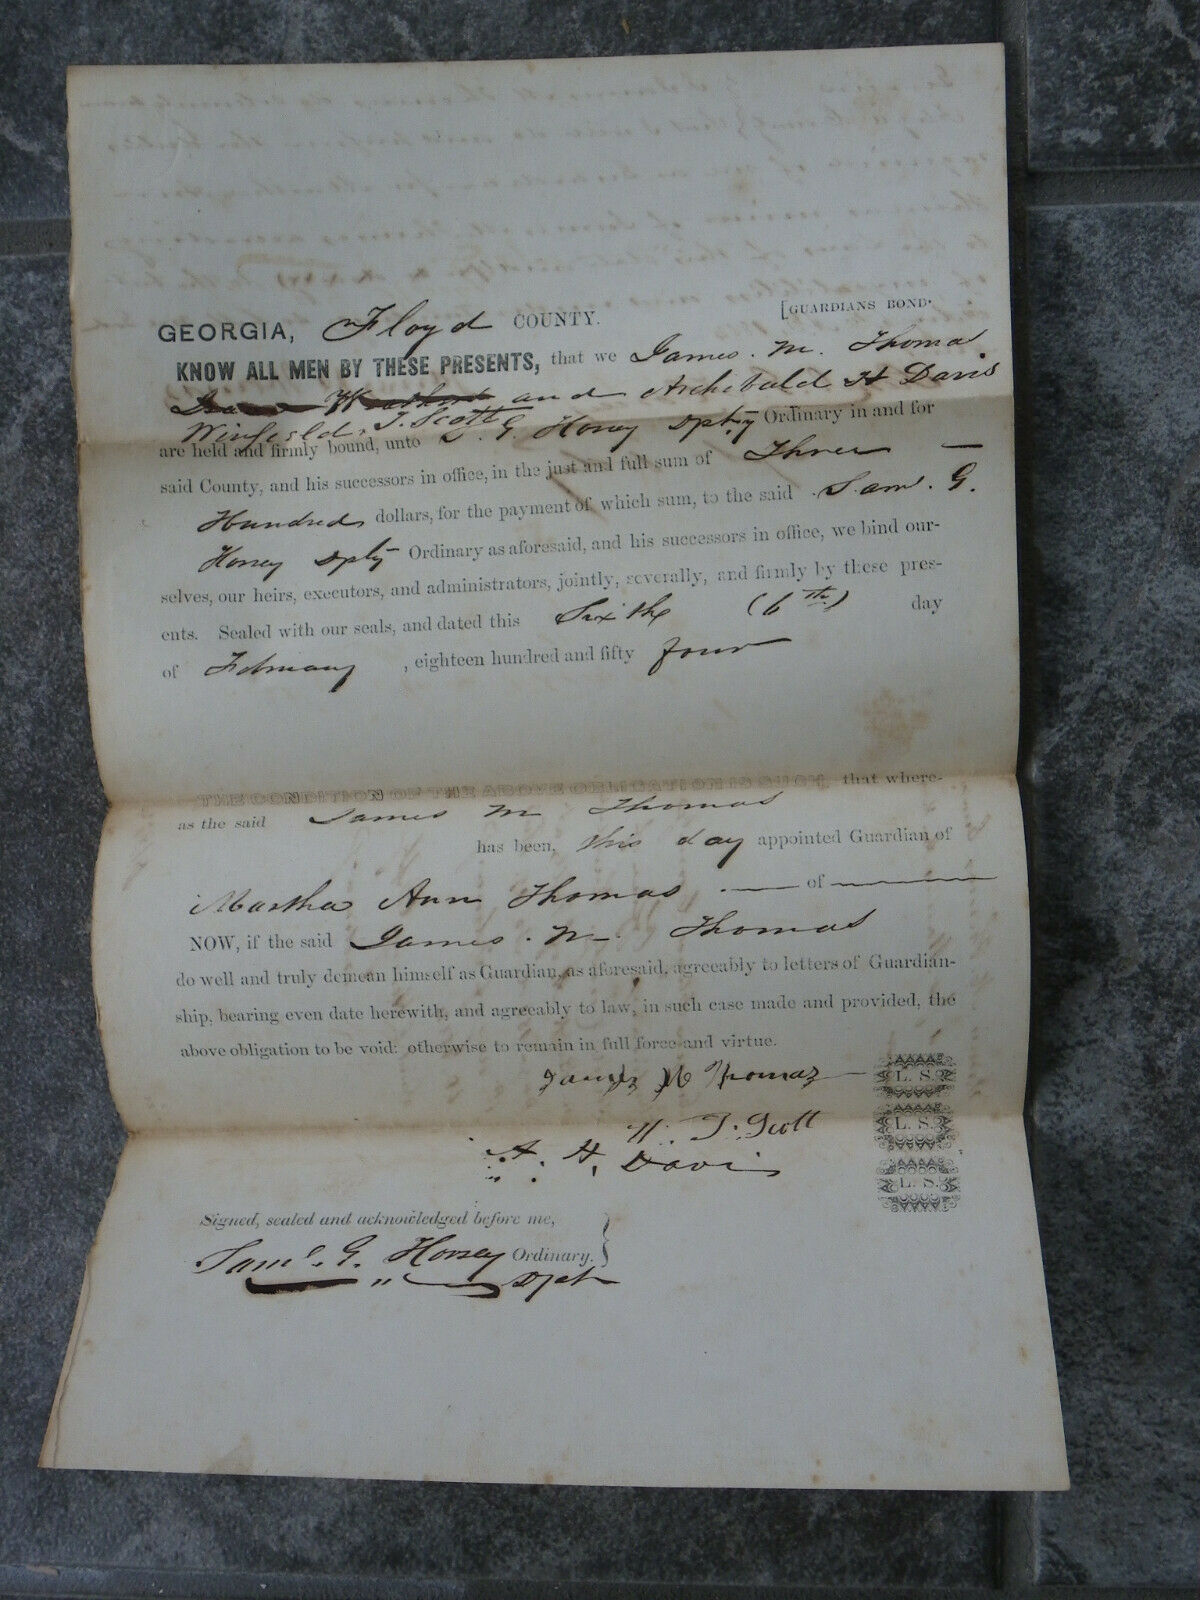 [GUARDIANS BOND.
GEORGIA, Floyd COUNTY.
KNOW ALL MEN BY THESE PRESENTS, that we James. M. Thomas
and Archibald H Davis
Winfield. T. Scott
are held and firmly bound, unto S. G. Horsey Dpty Ordinary in and for
said County, and his successors in office, in the just and full sum of Three
Hundred dollars, for the payment of which sum, to the said Saml. G.
Horsey Dpty Ordinary as aforesaid, and his successors in office, we bind our-
selves, our heirs, executors, and administrators, jointly, severally, and firmly by these pres-
ents. Sealed with our seals, and dated this Sixth (6th) day
of February , eighteen hundred and fifty four
THE CONDITION OF THE ABOVE OBLIGATION IS SUCH, that where-
as the said James M Thomas
has been, this day appointed Guardian of
Martha Ann Thomas of
NOW, if the said James. M. Thomas
do well and truly demean himself as Guardian, as aforesaid, agreeably to letters of Guardian-
ship, bearing even date herewith, and agreeably to law, in such case made and provided, the
above obligation to be void: otherwise to remain in full force and virtue.
James M Thomas L. S.
W. T. Scott L. S.
A. H. Davis L. S.
Signed, sealed and acknowledged before me,
Saml. G. Horsey Ordinary. }